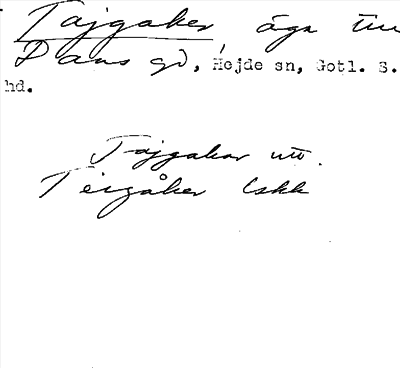 Tajgaker, äga till
Dans gd, Hejde sn, Gotl. S.
hd.
Tajgakar utt.
Teigåker Lskk